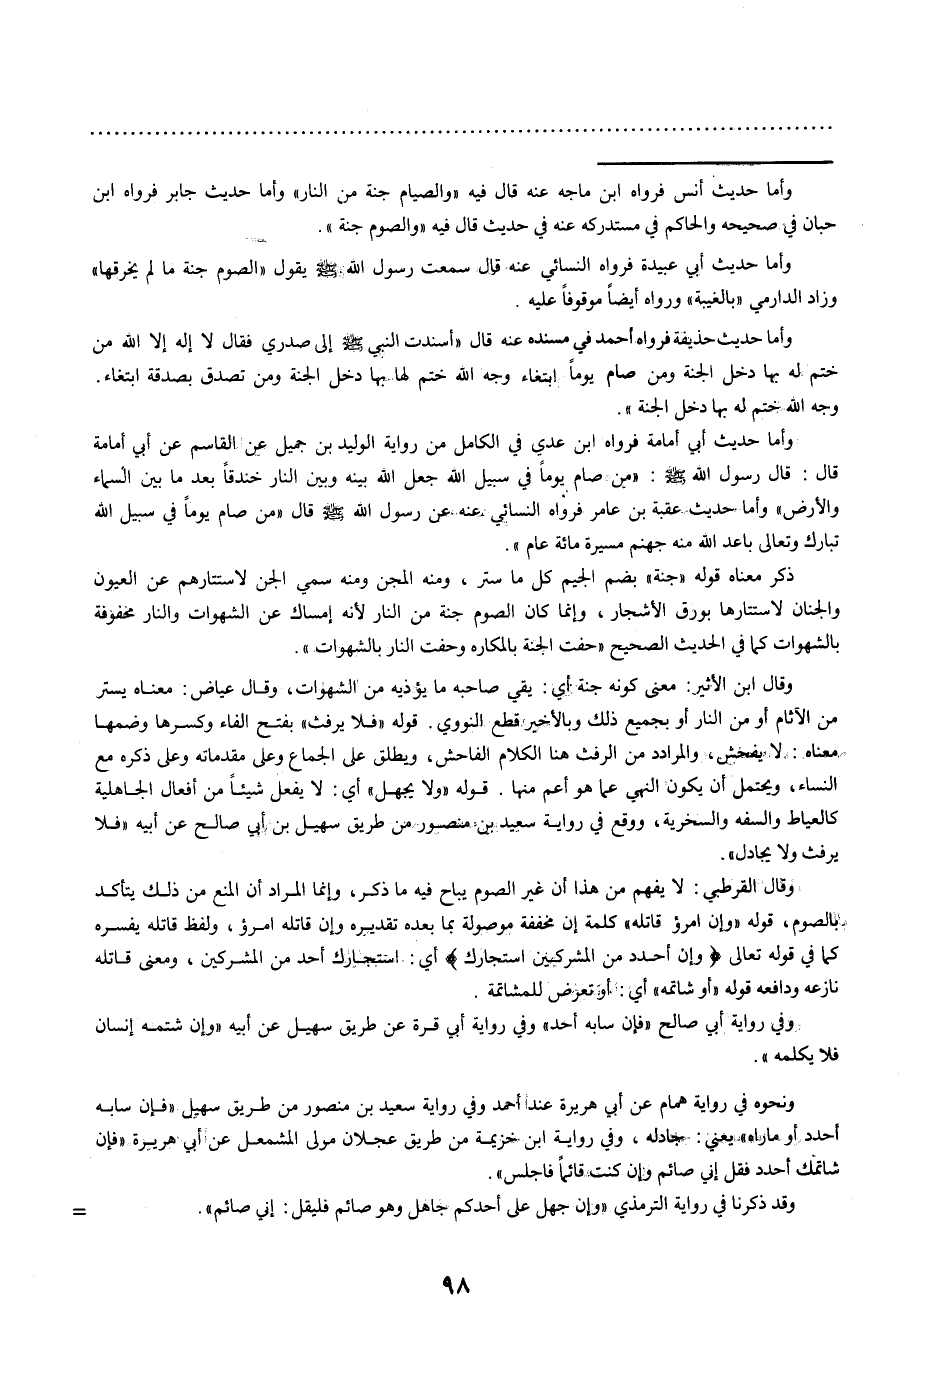 وأما حديث أنس فرواه ابن ماجه عنه قال فيه «والصيام جنة من النار» وأما حديث جابر فرواه ابن
حبان في صحيحه والحاكم في مستدركه عنه في حديث قال فيه «والصوم جنة ».
وأما حديث أبي عبيدة فرواه النسائي عنه قال سمعت رسول الله ﷺ يقول «الصوم جنة ما لم يخرقها»
وزاد الدارمي «بالغيبة» ورواه أيضاً موقوفاً عليه .
وأما حديث حذيفة فرواه أحمد في مسنده عنه قال «أسندت النبي ﷺ إلى صدري فقال لا إله إلا الله من
ختم له بها دخل الجنة ومن صام يوماً ابتغاء وجه الله ختم لها بها دخل الجنة ومن تصدق بصدقة ابتغاء.
وجه الله ختم له بها دخل الجنة ».
وأما حديث أبي أمامة فرواه ابن عدي في الكامل من رواية الوليد بن جميل عن القاسم عن أبي أمامة
قال : قال رسول الله ﷺ : «من صام يوماً في سبيل الله جعل الله بينه وبين النار خندقاً بعد ما بين السماء
والأرض» وأما حديث عقبة بن عامر فرواه النسائي عنه عن رسول الله ﷺ قال «من صام يوماً في سبيل الله
تبارك وتعالى باعد الله منه جهنم مسيرة مائة عام ».
ذكر معناه قوله «جنة» بضم الجيم كل ما ستر ، ومنه المجن ومنه سمي الجن لاستتارهم عن العيون
والجنان لاستتارها بورق الأشجار ، وإنما كان الصوم جنة من النار لأنه إمساك عن الشهوات والنار محفوفة
بالشهوات كما في الحديث الصحيح «حفت الجنة بالمكاره وحفت النار بالشهوات ».
وقال ابن الأثير: معنى كونه جنة أي: يقي صاحبه ما يؤذيه من الشهوات، وقال عياض: معناه يستر
من الآثام أو من النار أو بجميع ذلك وبالأخير قطع النووي. قوله «فلا يرفث» بفتح الفاء وكسرها وضمها
معناه : لا يفحش، والمرادد من الرفث هنا الكلام الفاحش، ويطلق على الجماع وعلى مقدماته وعلى ذكره مع
النساء، ويحتمل أن يكون النهي عما هو أعم منها . قوله «ولا يجهل» أي: لا يفعل شيئاً من أفعال الجاهلية
كالعياط والسفه والسخرية، ووقع في رواية سعيد بن منصور من طريق سهيل بن أبي صالح عن أبيه «فلا
يرفث ولا يجادل».
وقال القرطبي: لا يفهم من هذا أن غير الصوم يباح فيه ما ذكر، وإنما المراد أن المنع من ذلك يتأكد
بالصوم، قوله «وإن امرؤ قاتله» كلمة إن مخففة موصولة بما بعده تقديره وإن قاتله امرؤ ، ولفظ قاتله يفسره
كما في قوله تعالى ﴿ وإن أحدد من المشركين استجارك ﴾ أي: استجارك أحد من المشركين ، ومعنى قاتله
نازعه ودافعه قوله «أو شاتمه» أي: أو تعرض للمشاتمة .
وفي رواية أبي صالح «فإن سابه أحد» وفي رواية أبي قرة عن طريق سهيل عن أبيه «وإن شتمه إنسان
فلا يكلمه ».
ونحوه في رواية همام عن أبي هريرة عند أحمد وفي رواية سعيد بن منصور من طريق سهيل «فإن سابه
أحدد أو ماراه» يعني: جادله ، وفي رواية ابن خزيمة من طريق عجلان مولى المشمعل عن أبي هريرة «فإن
شاتمك أحدد فقل إني صائم وإن كنت قائماً فاجلس».
وقد ذكرنا في رواية الترمذي «وإن جهل على أحدكم جاهل وهو صائم فليقل: إني صائم». =
٩٨